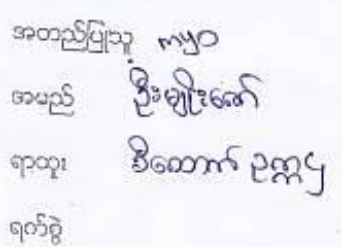 အတည်ပြုသူ
အမည် ဦးမျိုးဇော်
ရာထူး ဒီကောက် ဥက္ကဌ
ရက်စွဲ